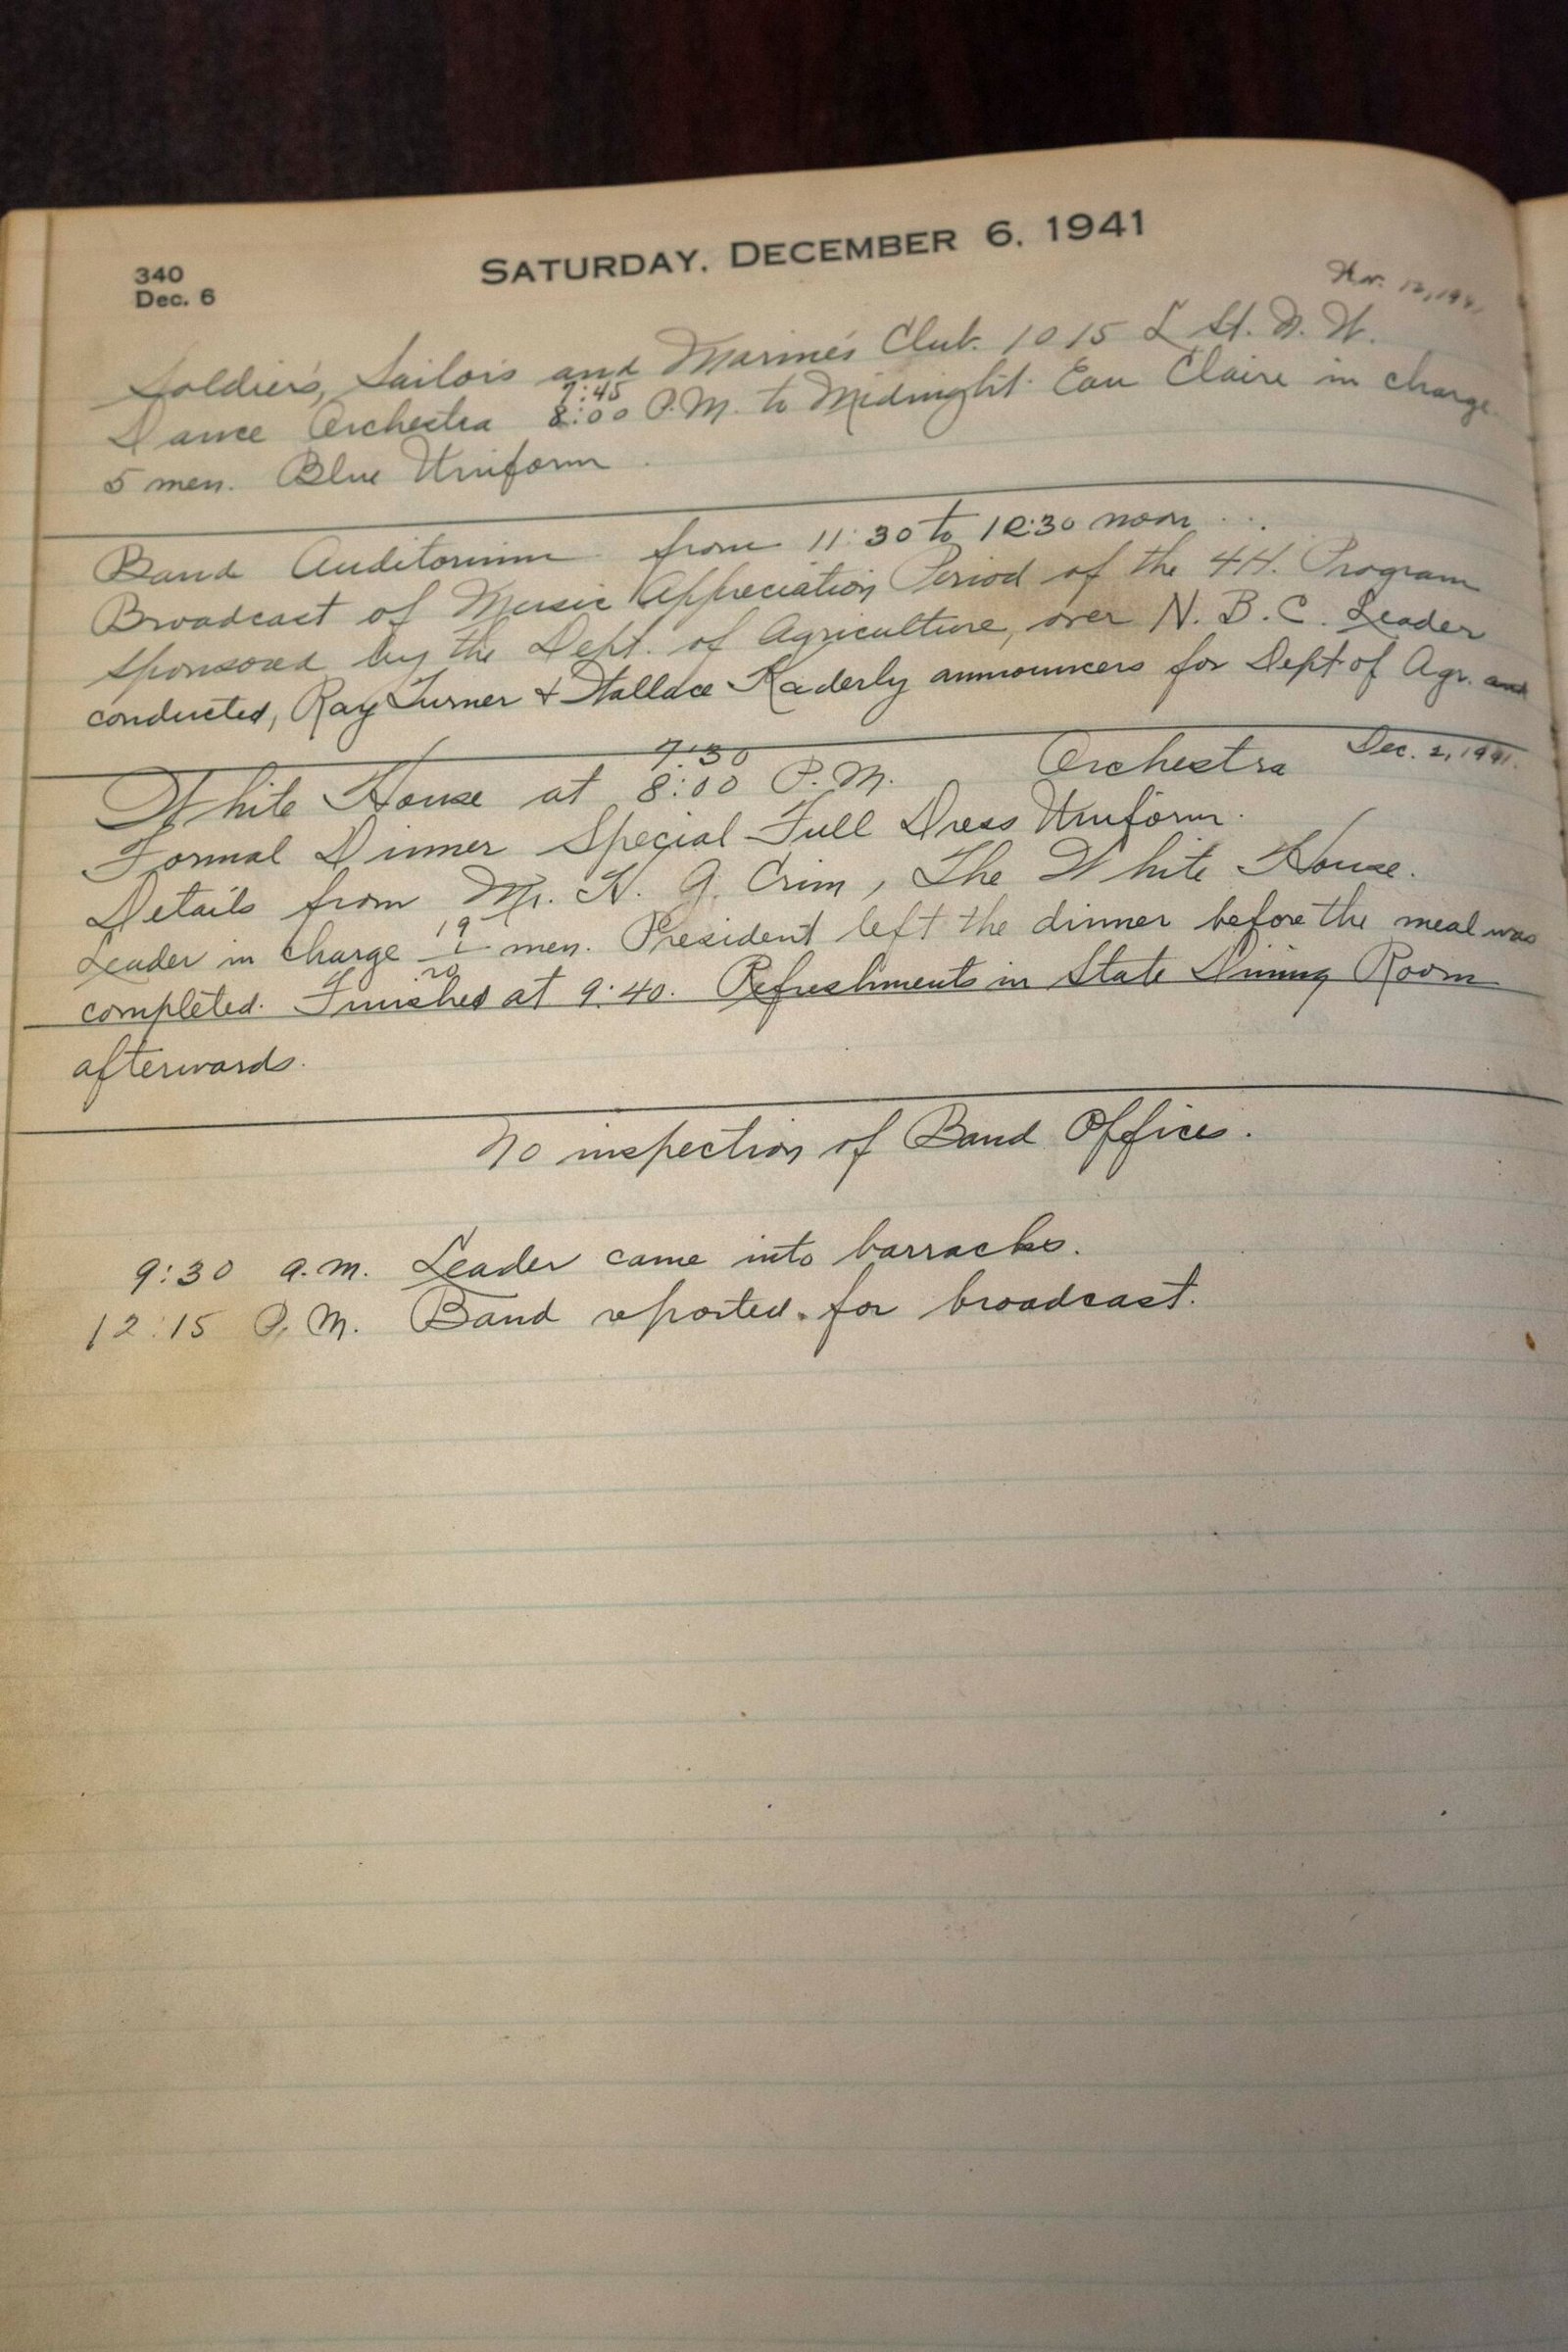 SATURDAY, DECEMBER 6, 1941
340
Dec. 6
Nov. 12, 1941
Soldier's, Sailor's and Marine's Club. 1015 L St. N. W.
7:45
Dance Orchestra 8:00 P.M. to Midnight. Eau Claire in charge
5 men. Blue Uniform
Band Auditorium from 11:30 to 12:30 noon
Broadcast of Music Appreciation Period of the 4H. Program
sponsored by the Dept. of Agriculture, over N. B. C. Leader
conducted, Ray Turner + Wallace Kaderly announcers for Dept of Agr. and
7:30
White House at 8:00 P.M. Orchestra Dec. 2, 1941.
Formal Dinner Special Full Dress Uniform.
Details from Mr. H. G. Crim, The White House.
19
Leader in charge men. President left the dinner before the meal was
20
completed. Finished at 9:40. Refreshments in State Dining Room
afterwards.
No inspection of Band Offices.
9:30 a.m. Leader came into barracks.
12:15 P.M. Band reported for broadcast.